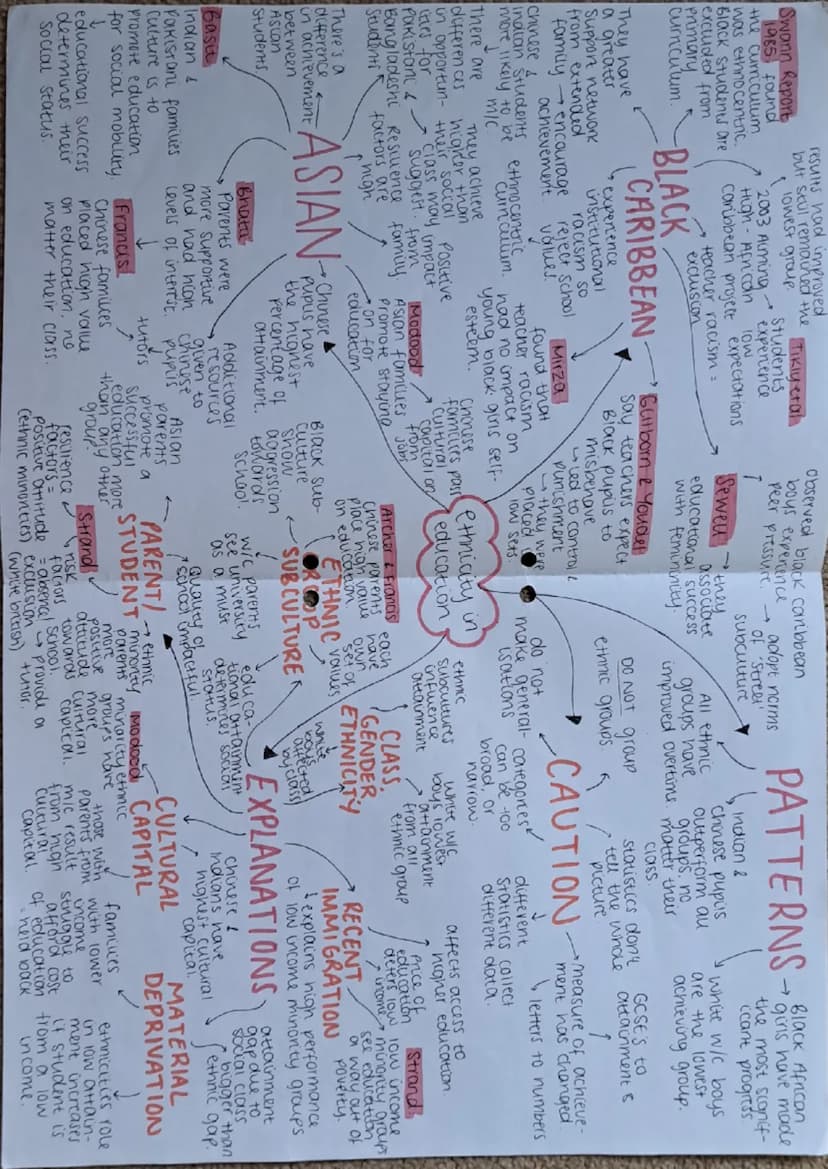 ethnicity in
education
BLACK
CARIBBEAN
Swann Report
1985, found
the curriculum
was ethnocentric.
Black students are
excluded from
primary
curriculum.
results had improved
but still remained the
lowest group
2003 Aiming
High - African
Caribbean project
Tikly et al
Students
experience
low
expectations
teacher racism =
exclusion
They have
a greater
support network
from extended
family → encourage
achievement
experience
institutional
racism so
reject school
value!
ethnocentric
curriculum.
Mirza
found that
teacher racism
had no impact on
young black girls self-
esteem.
Gillborn & Youdell
say teachers expect
Black pupils to
misbehave
↳ led to control &
punishment
→ they were
placed
low sets
Sewell
→ they
associate
educational success
with femininity.
observed black caribbean
boys experience
peer pressure.
→ adopt norms
of 'street'
subculture
ASIAN
There's a
difference
in achievement
between
Asian
students
There are
differences
in opportun-
ities for
Pakistani &
Bangladeshi
students
Chinese &
Indian students
more likely to be
m/c
They achieve
higher than
their social
class may
suggest.
Resilience
factors are
high
positive
impact
from
family
Basit
Indian &
Pakistani families
culture is to
promote education
for social mobility
↓
educational success
determines their
social status.
Bhatti
Parents were
more supportive
and had high
levels of interest
Francis
Chinese families
placed high value
on education, no
matter their class.
Additional
resources
given to
chinese
pupils
tutors
Chinese
pupils have
the highest
percentage of
attainment.
Modood
Asian families
promote staying
on for
education
Chinese
families pass
cultural
capital on
from
PATTERNS
→ Black African
girls have made
the most signif-
icant progress
White w/c boys
are the lowest
achieving group.
Indian &
Chinese pupils
outperform all
groups, no
matter their
class.
All ethnic
groups have
improved overtime
CAUTION
→ measure of achieve-
ment has changed
↓ letters to numbers
GCSE's to
attainment 8
statistics don't
tell the whole
picture
DO NOT group
ethnic groups.
do not
make general-
isations
categories
can be too
broad, or
narrow.
different
statistics collect
different data.
EXPLANATIONS
ETHNIC
GROUP
SUBCULTURE
Archer & Francis
Chinese parents
place high value
on education.
each
have
own
set of
values
Black sub-
culture
show
aggression
towards
school.
w/c parents
see university
as a must
educa-
tional attainment
determines social
status.
CLASS,
GENDER,
ETHNICITY
ethnic
subcultures
influence
attainment
white w/c
boys lowest
attainment
from all
ethnic group
white
boys
affected
by class
RECENT
IMMIGRATION
↓ explains high performance
of low income minority groups
Strand
low income
minority groups
see education
a way out of
poverty.
price of
education
deters low
income
affects access to
higher education
PARENT/
STUDENT
quality of
school impactful
Asian
parents
promote a
successful
education more
than any other
group.
→ ethnic
minority
parents
more
positive
attitude
towards
school.
Strand
resilience
factors =
positive attitude
(ethnic minorities)
risk
factors
= absence,
exclusion
(white british)
CULTURAL
CAPITAL
Modood
minority ethnic
groups have
more
cultural
capital.
↳ provide a
tutor.
those with
parents from
m/c result
from high
cultural
capital.
Chinese &
Indians have
highest cultural
capital.
MATERIAL
DEPRIVATION
families
with lower
income
struggle to
afford cost
of education
= held back
attainment
gap due to
social class
bigger than
ethnic gap.
ethnicities role
in low attain-
ment increases
if student is
from a low
income.